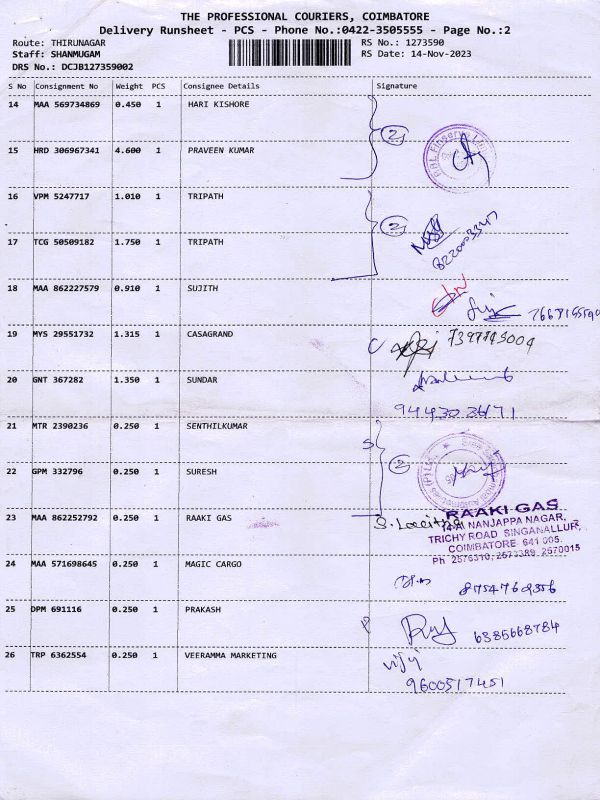 THE PROFESSIONAL COURIERS, COIMBATORE
Delivery Runsheet - PCS - Phone No.:0422-3505555 - Page No.:2
Route: THIRUNAGAR RS No.: 1273590
Staff: SHANMUGAM RS Date: 14-Nov-2023
DRS No.: DCJB127359002
S No Consignment No Weight PCS Consignee Details Signature
14 MAA 569734869 0.450 1 HARI KISHORE
2
15 HRD 306967341 4.600 1 PRAVEEN KUMAR
16 VPM 5247717 1.010 1 TRIPATH
2
17 TCG 50509182 1.750 1 TRIPATH
8220003347
18 MAA 862227579 0.910 1 SUJITH
19 MYS 29551732 1.315 1 CASAGRAND
20 GNT 367282 1.350 1 SUNDAR
21 MTR 2390236 0.250 1 SENTHILKUMAR
22 GPM 332796 0.250 1 SURESH
2
23 MAA 862252792 0.250 1 RAAKI GAS
RAAKI GAS
NANJAPPA NAGAR,
TRICHY ROAD SINGANALLUR,
COIMBATORE 641 005.
Ph 2576310, 2573389, 2570015
24 MAA 571698645 0.250 1 MAGIC CARGO
8754762356
25 DPM 691116 0.250 1 PRAKASH
6385668784
26 TRP 6362554 0.250 1 VEERAMMA MARKETING
viji
9600517451